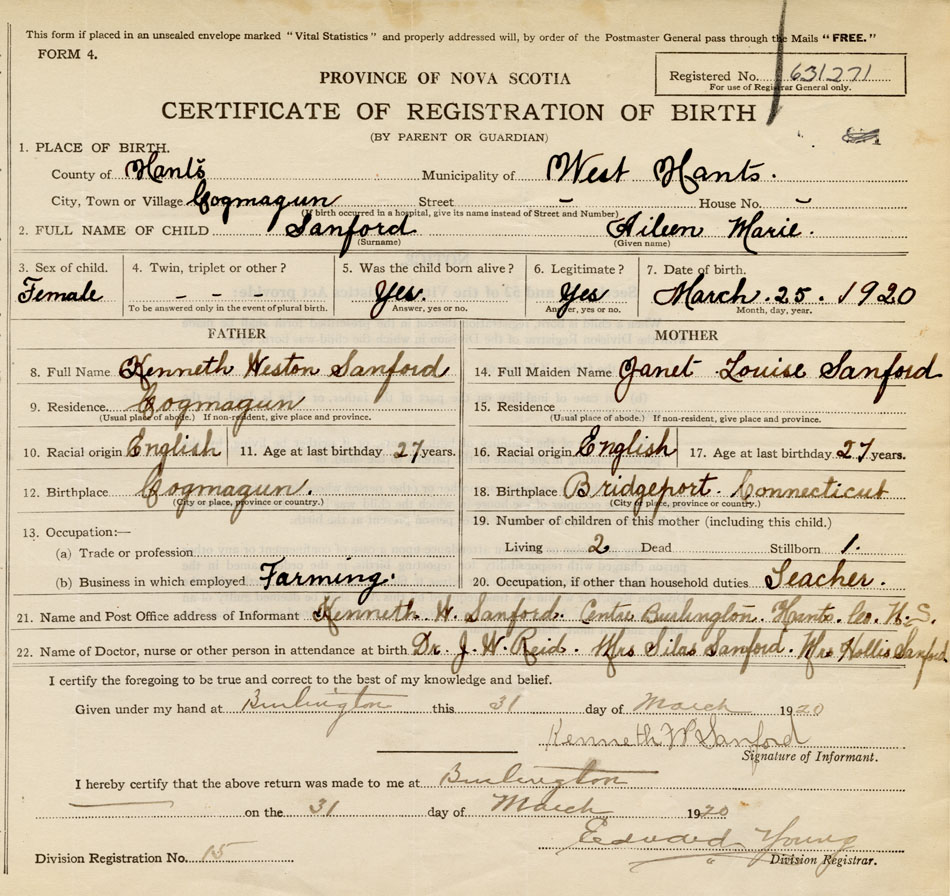 This form if placed in an unsealed envelope marked "Vital Statistics" and properly addressed will, by order of the Postmaster General pass through the Mails "FREE."
FORM 4.
PROVINCE OF NOVA SCOTIA
Registered No. 631271
For use of Registrar General only.
CERTIFICATE OF REGISTRATION OF BIRTH
(BY PARENT OR GUARDIAN)
1. PLACE OF BIRTH.
County of Hants Municipality of West Hants.
City, Town or Village Cogmagun Street - House No. -
(If birth occurred in a hospital, give its name instead of Street and Number)
2. FULL NAME OF CHILD Sanford Aileen Marie.
(Surname) (Given name)
3. Sex of child. 4. Twin, triplet or other? 5. Was the child born alive? 6. Legitimate? 7. Date of birth.
Female - - - Yes. Yes March. 25. 1920
To be answered only in the event of plural birth. Answer, yes or no. Answer, yes or no. Month, day, year.
FATHER MOTHER
8. Full Name Kenneth Weston Sanford 14. Full Maiden Name Janet Louise Sanford
9. Residence. Cogmagun 15. Residence
(Usual place of abode.) If non-resident, give place and province. (Usual place of abode.) If non-resident, give place and province.
10. Racial origin English 11. Age at last birthday 27 years. 16. Racial origin English 17. Age at last birthday 27 years.
12. Birthplace Cogmagun. 18. Birthplace Bridgeport. Connecticut
(City or place, province or country.) (City or place, province or country.)
13. Occupation:— 19. Number of children of this mother (including this child.)
(a) Trade or profession Living 2 Dead Stillborn 1.
(b) Business in which employed Farming. 20. Occupation, if other than household duties Teacher.
21. Name and Post Office address of Informant Kenneth W. Sanford. Centre Burlington. Hants. Co. N.S.
22. Name of Doctor, nurse or other person in attendance at birth Dr. J. W. Reid. Mrs Silas Sanford. Mrs Hollis Sanford
I certify the foregoing to be true and correct to the best of my knowledge and belief.
Given under my hand at Burlington this 31 day of March 1920
Kenneth W Sanford
Signature of Informant.
I hereby certify that the above return was made to me at Burlington
on the 31 day of March 1920
Edward Young
Division Registrar.
Division Registration No. 15